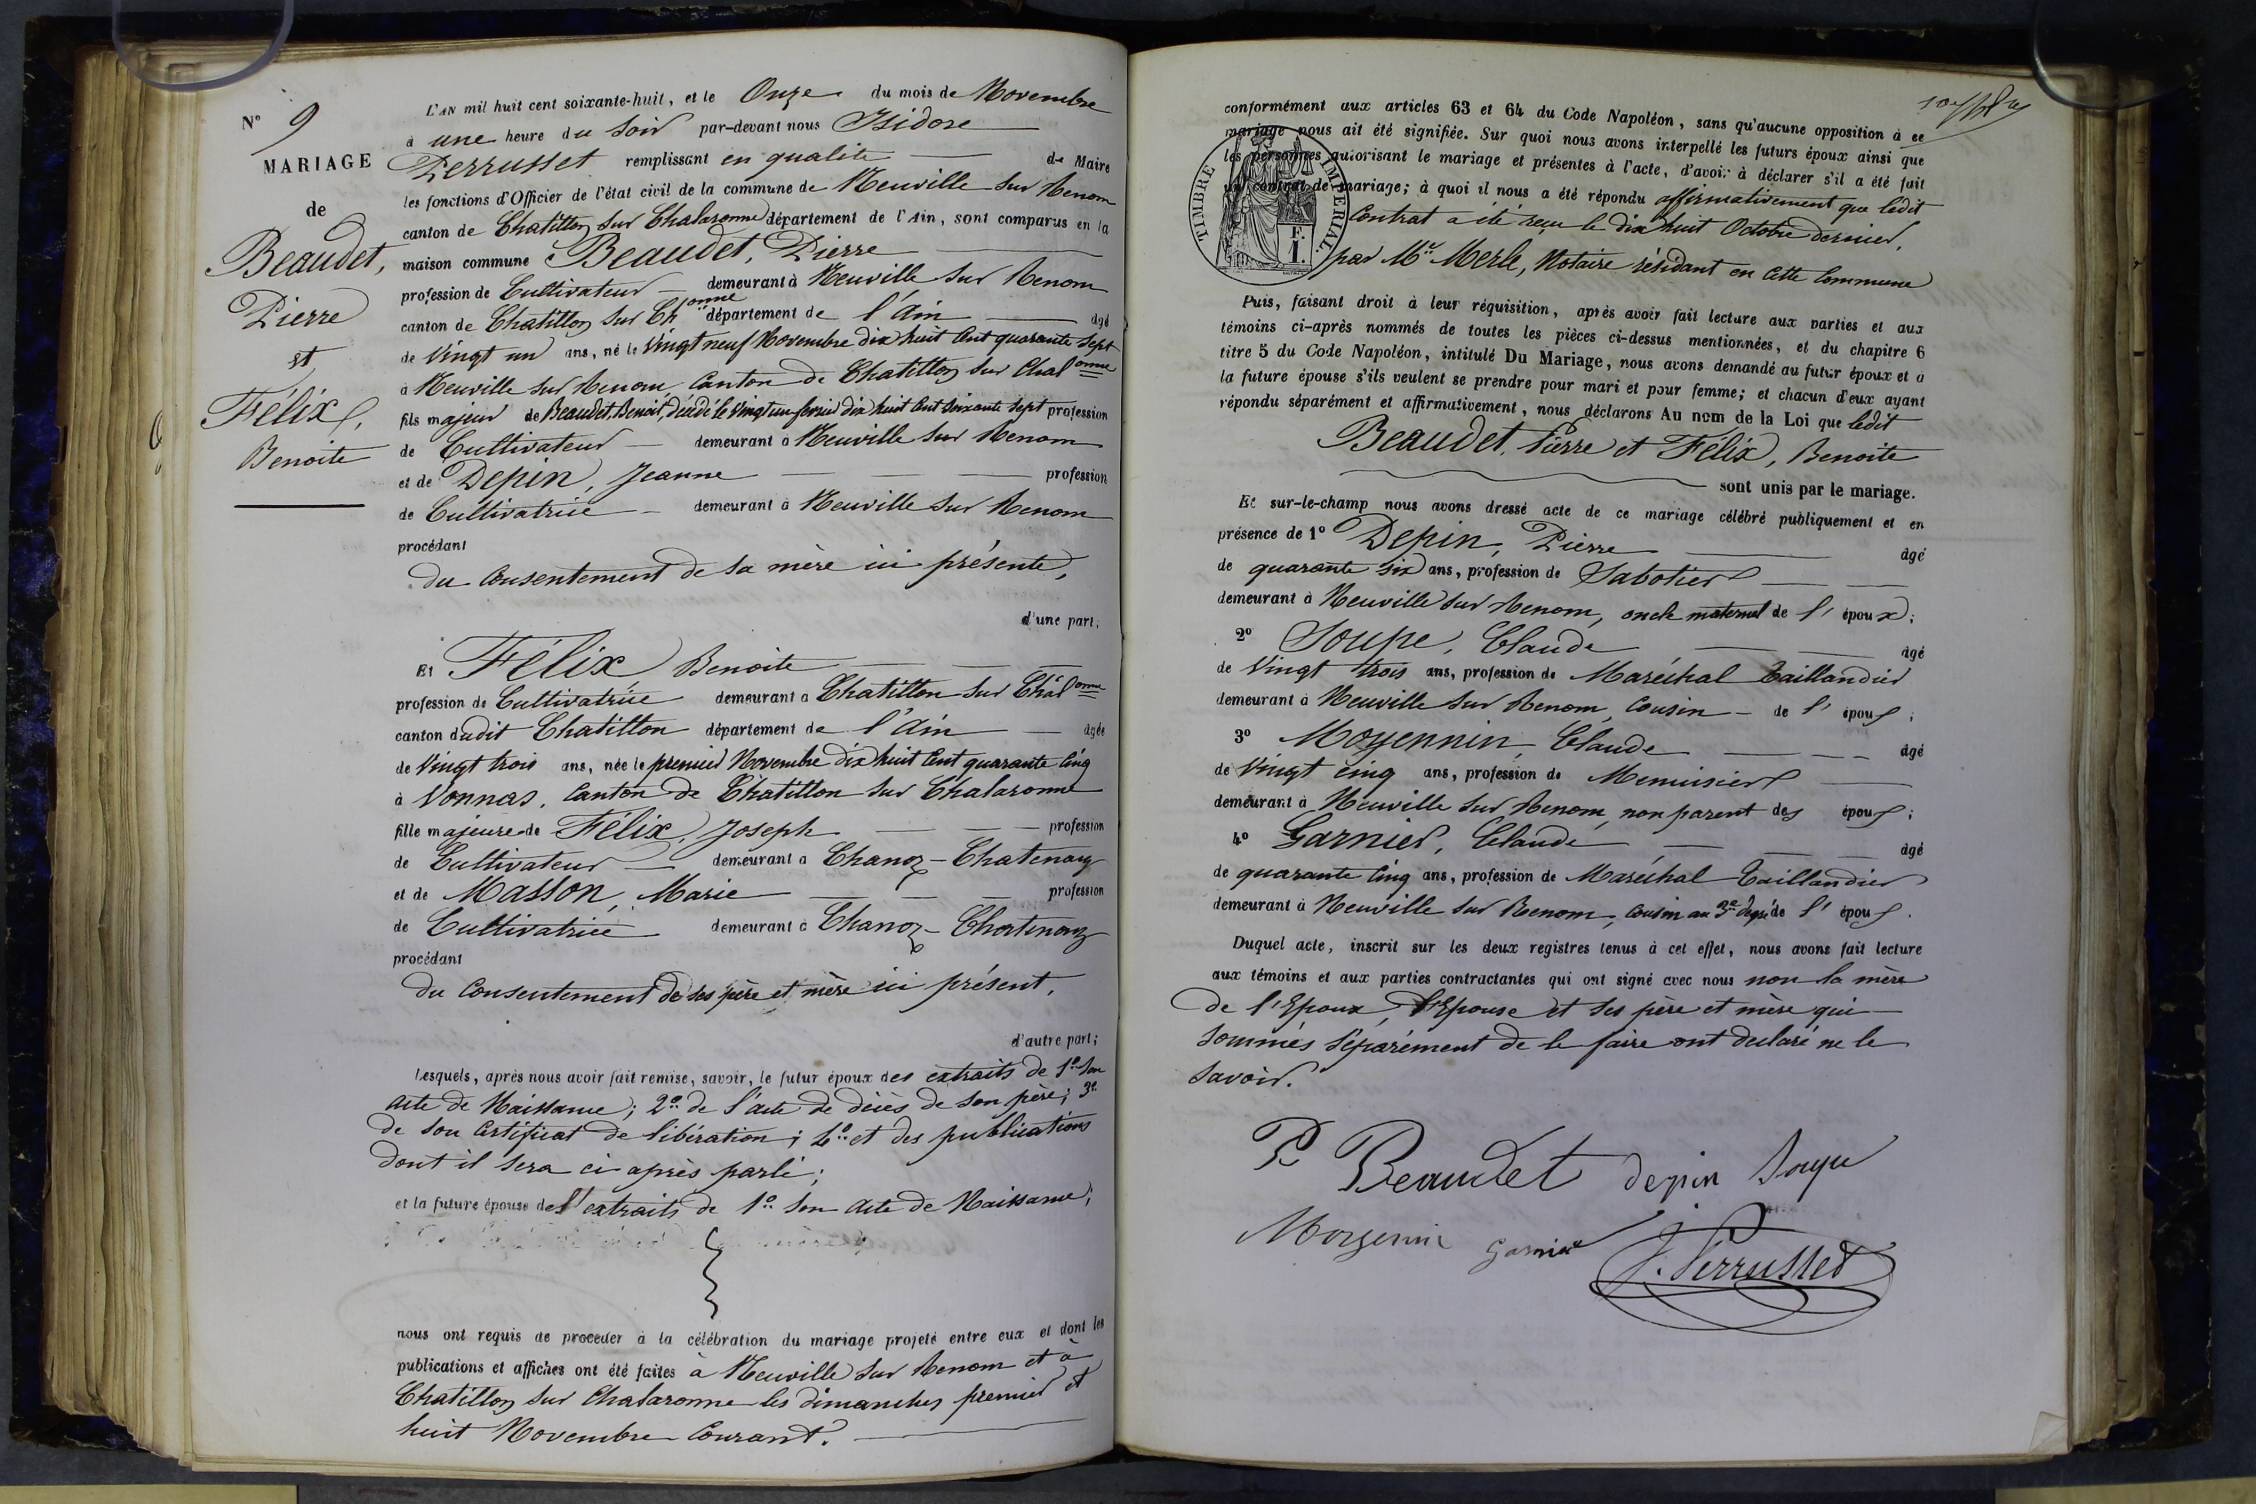 N° 9
MARIAGE
de
Beaudet,
Pierre
et
Félix,
Benoite
L'AN mil huit cent soixante-huit, et le Onze du mois de Novembre
à une heure du Soir par-devant nous Isidore
Perrusset remplissant en qualité de Maire
les fonctions d'Officier de l'état civil de la commune de Neuville sur Renom
canton de Chatillon sur Chalaronne département de l'Ain, sont comparus en la
maison commune Beaudet, Pierre
profession de Cultivateur demeurant à Neuville sur Renom
canton de Chatillon sur Ch onne département de l'Ain âgé
de Vingt un ans, né le Vingt neuf Novembre dix huit Cent quarante Sept
à Neuville sur Renom Canton de Chatillon sur Chal onne
fils majeur de Beaudet, Benoit, décédé le vingt un fevrier dix huit Cent soixante sept profession
de Cultivateur demeurant à Neuville sur Renom
et de Depin, Jeanne profession
de Cultivatrice demeurant à Neuville sur Renom
procédant
du Consentement de sa mère ici présente,
d'une part;
Et Félix, Benoite
profession de Cultivatrice demeurant à Chatillon sur Chal onne
canton dudit Chatillon département de l'Ain âgée
de Vingt trois ans, née le premier Novembre dix huit Cent quarante Cinq
à Vonnas, Canton de Chatillon sur Chalaronne
fille majeure de Félix, Joseph profession
de Cultivateur demeurant à Chanoz-Chatenay
et de Masson, Marie profession
de Cultivatrice demeurant à Chanoz-Chatenay
procédant
du Consentement de ses père et mère ici présent,
d'autre part;
Lesquels, après nous avoir fait remise, savoir, le futur époux des extraits de 1° Son
acte de Naissance; 2° de l'acte de décès de son père; 3°
de son Certificat de libération; 4° et des publications
dont il sera ci après parlé;
et la future épouse des extraits de 1° Son acte de Naissance;
nous ont requis de procéder à la célébration du mariage projeté entre eux et dont les
publications et affiches ont été faites à Neuville sur Renom et à
Chatillon sur Chalaronne les dimanches premier et
huit Novembre Courant.
conformément aux articles 63 et 64 du Code Napoléon, sans qu'aucune opposition à ce
mariage nous ait été signifiée. Sur quoi nous avons interpellé les futurs époux ainsi que
les personnes autorisant le mariage et présentes à l'acte, d'avoir à déclarer s'il a été fait
un contrat de mariage; à quoi il nous a été répondu affirmativement que ledit
Contrat a été reçu le dix huit Octobre dernier,
par Me Merle, Notaire résidant en cette Commune
TIMBRE IMPERIAL
F.
1.
Puis, faisant droit à leur réquisition, après avoir fait lecture aux parties et aux
témoins ci-après nommés de toutes les pièces ci-dessus mentionnées, et du chapitre 6
titre 5 du Code Napoléon, intitulé Du Mariage, nous avons demandé au futur époux et à
la future épouse s'ils veulent se prendre pour mari et pour femme; et chacun d'eux ayant
répondu séparément et affirmativement, nous déclarons Au nom de la Loi que ledit
Beaudet, Pierre et Félix, Benoite
sont unis par le mariage.
Et sur-le-champ nous avons dressé acte de ce mariage célébré publiquement et en
présence de 1° Depin, Pierre âgé
de quarante six ans, profession de Sabotier
demeurant à Neuville sur Renom, oncle maternel de l'époux;
2° Soupe, Claude âgé
de Vingt trois ans, profession de Maréchal Taillandier
demeurant à Neuville sur Renom, Cousin de l'époux;
3° Moyennin, Claude âgé
de Vingt cinq ans, profession de Menuisier
demeurant à Neuville sur Renom, non parent des époux;
4° Garnier, Claude âgé
de quarante Cinq ans, profession de Maréchal Taillandier
demeurant à Neuville sur Renom, Cousin au 3e degré de l'époux.
Duquel acte, inscrit sur les deux registres tenus à cet effet, nous avons fait lecture
aux témoins et aux parties contractantes qui ont signé avec nous non la mère
de l'Epoux, l'Epouse et ses père et mère qui
sommés séparément de le faire ont déclaré ne le
savoir.
P Beaudet depin Soupe
Moyenin Garnier J. Perrusset